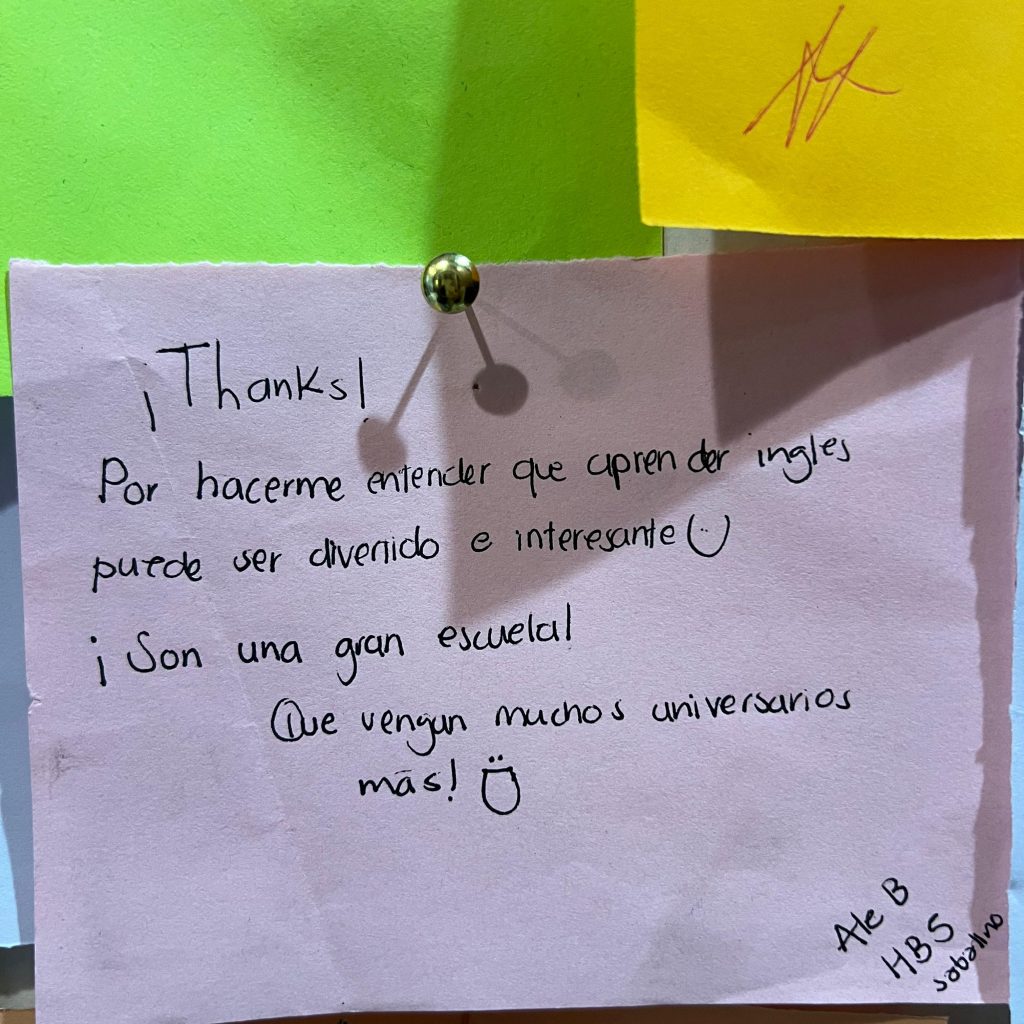 ¡Thanks!
Por hacerme entender que aprender ingles
puede ser divertido e interesante
¡Son una gran escuela!
Que vengan muchos aniversarios
más!
Ale B
HBS
sabatino